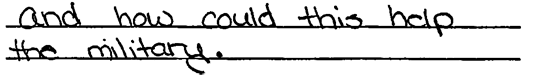 and how could this help
the military.